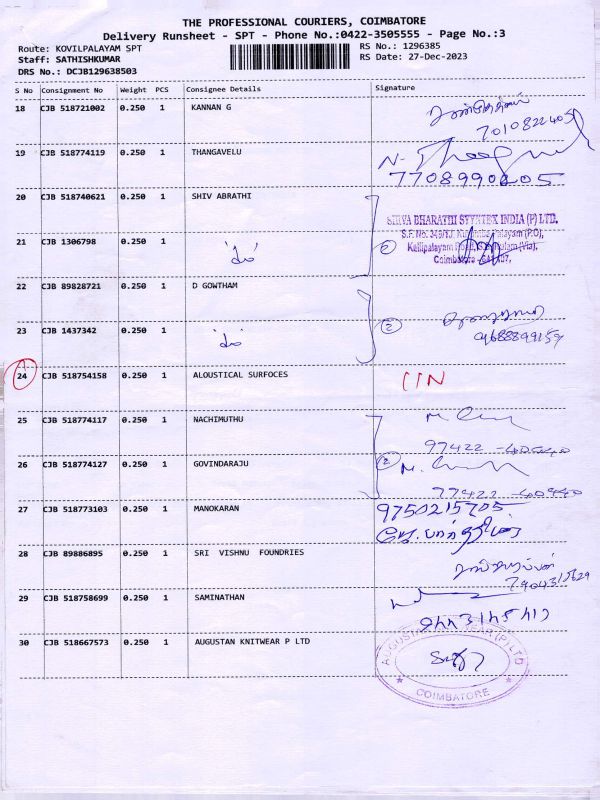 THE PROFESSIONAL COURIERS, COIMBATORE
Delivery Runsheet - SPT - Phone No.:0422-3505555 - Page No.:3
Route: KOVILPALAYAM SPT RS No.: 1296385
Staff: SATHISHKUMAR RS Date: 27-Dec-2023
DRS No.: DCJB129638503
S No Consignment No Weight PCS Consignee Details Signature
18 CJB 518721002 0.250 1 KANNAN G
7010822405
19 CJB 518774119 0.250 1 THANGAVELU N.
7708990805
20 CJB 518740621 0.250 1 SHIV ABRATHI
SHIVA BHARATHI SYNTEX INDIA (P) LTD.
21 CJB 1306798 0.250 1 2
Coimbatore
22 CJB 89828721 0.250 1 D GOWTHAM
23 CJB 1437342 0.250 1 2
9688899159
24 CJB 518754158 0.250 1 ALOUSTICAL SURFOCES
25 CJB 518774117 0.250 1 NACHIMUTHU M.
97422
26 CJB 518774127 0.250 1 GOVINDARAJU 2 M.
77422
27 CJB 518773103 0.250 1 MANOKARAN 9750215705
28 CJB 89886895 0.250 1 SRI VISHNU FOUNDRIES
7904315629
29 CJB 518758699 0.250 1 SAMINATHAN
30 CJB 518667573 0.250 1 AUGUSTAN KNITWEAR P LTD
AUGUSTAN KNITWEAR (P) LTD
COIMBATORE